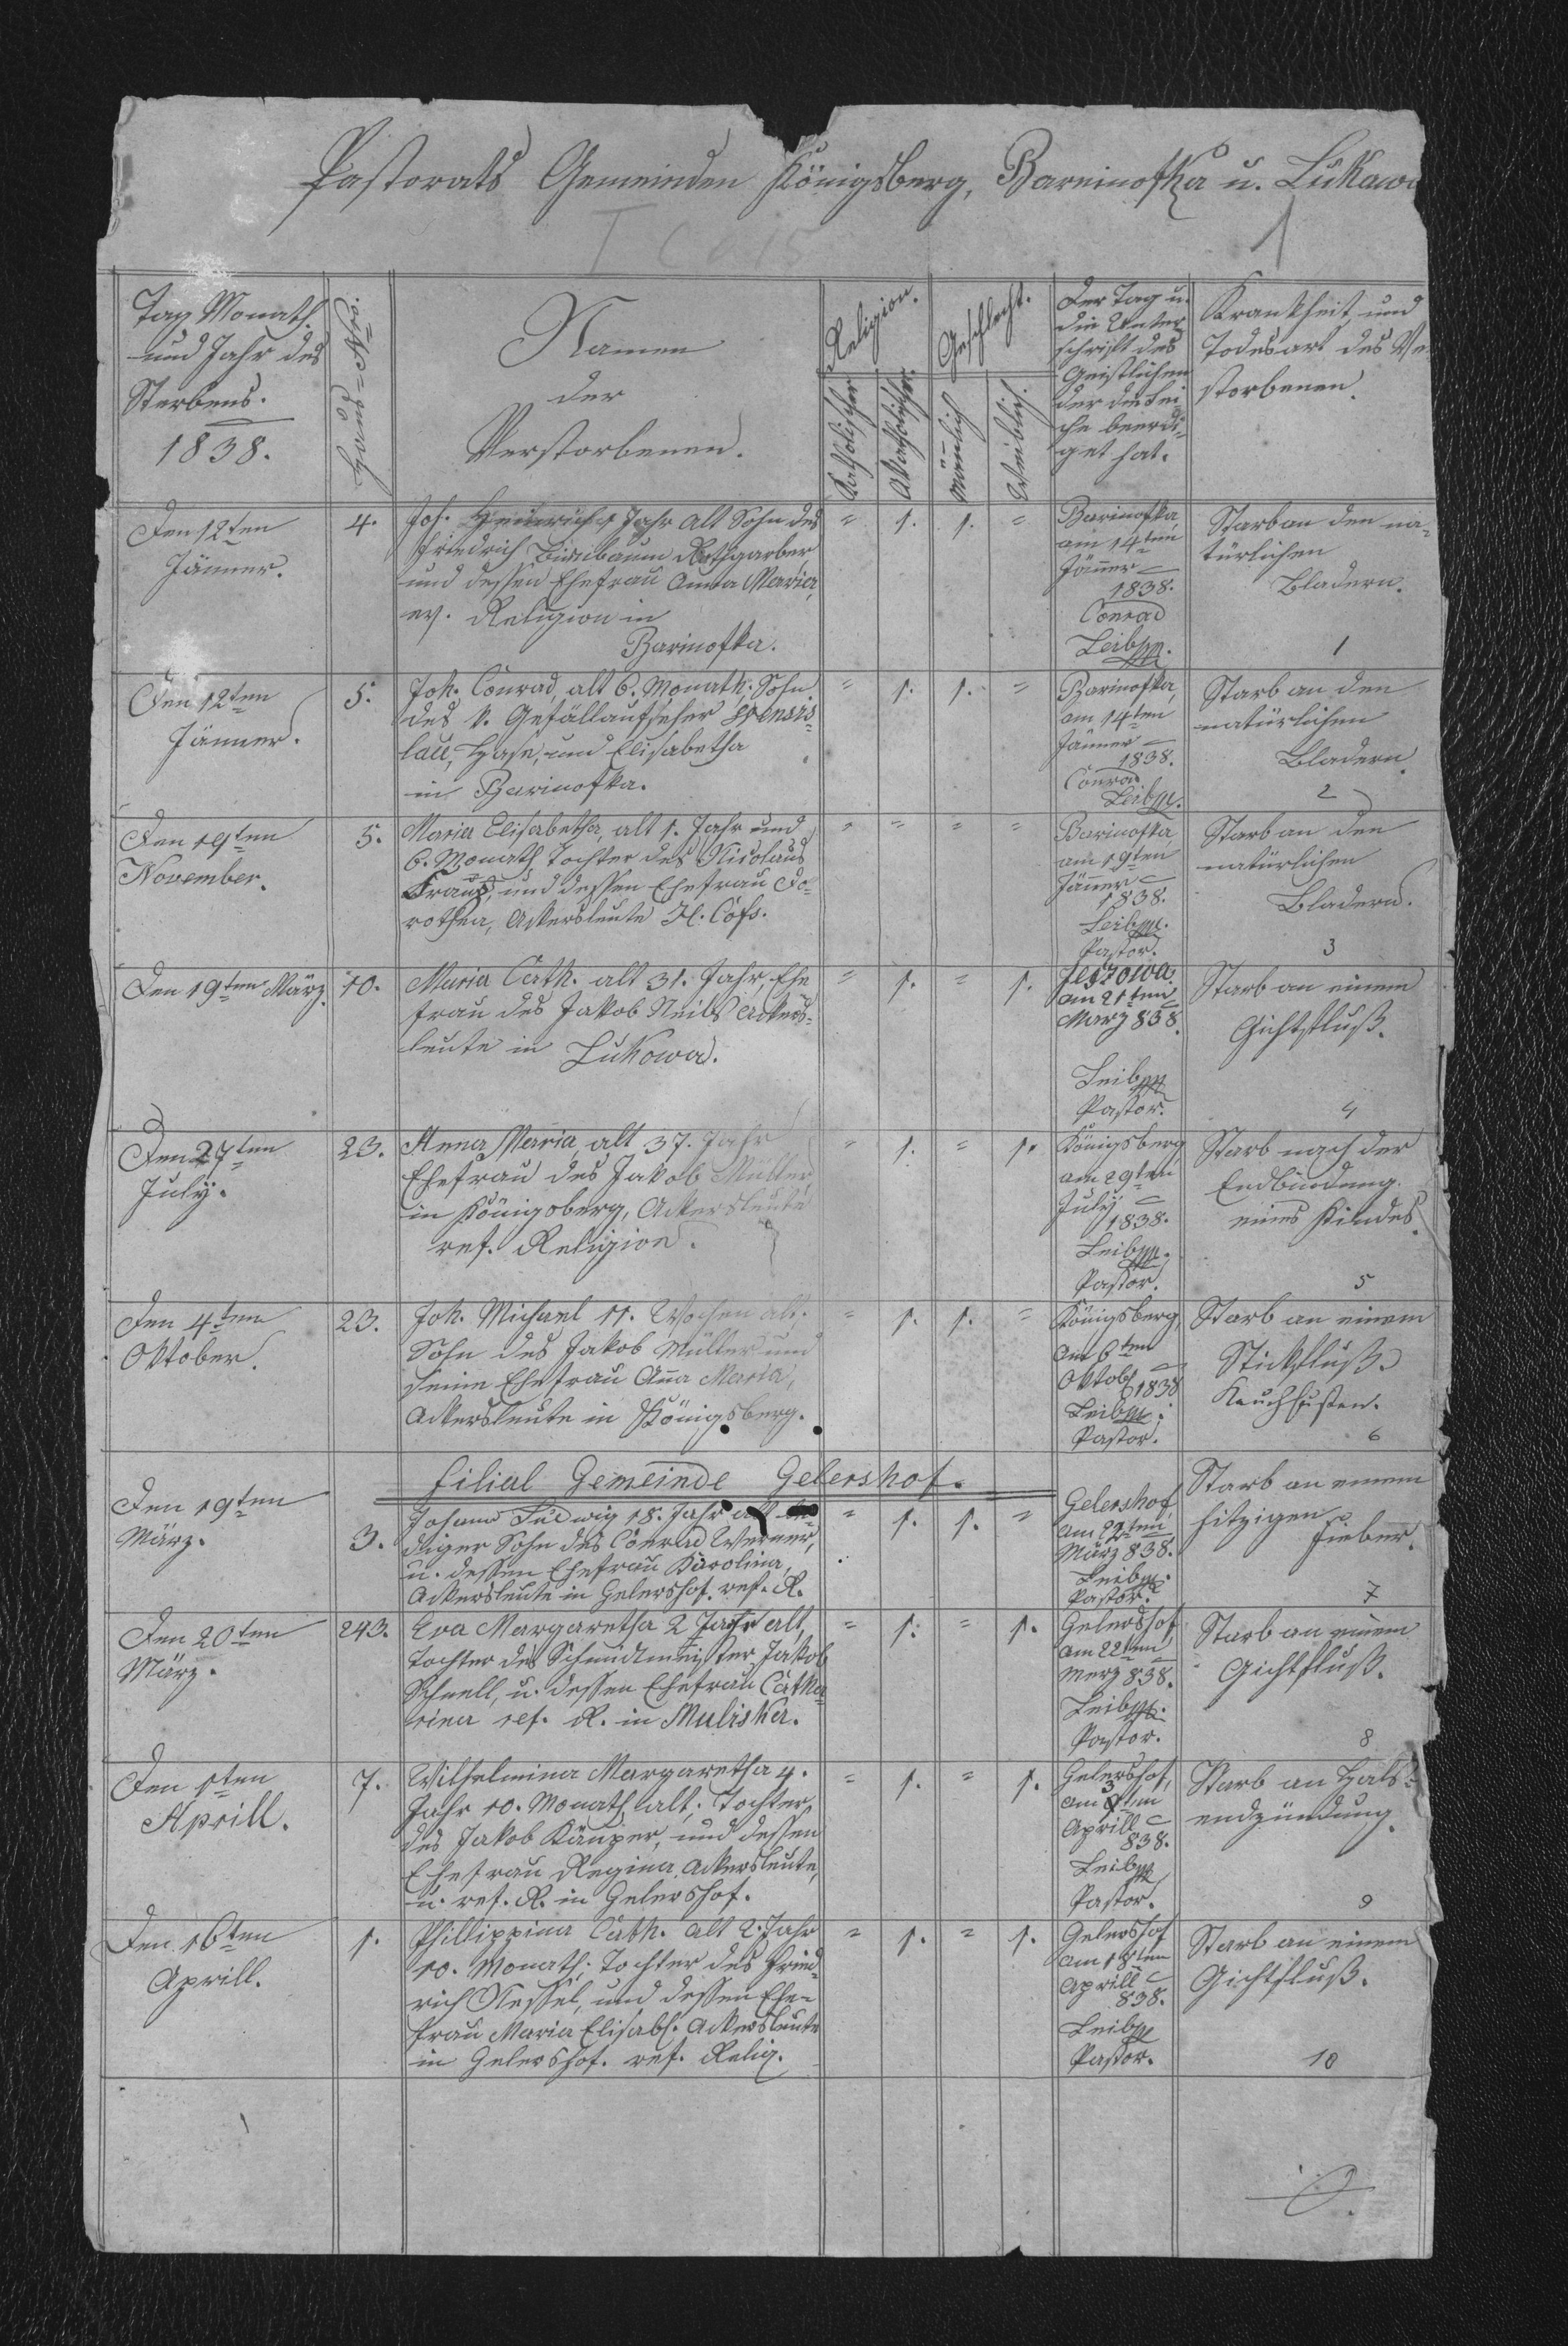 Pastorats Gemeinden Königsberg, Barinofka u. Lukawa
1
Tag Monath
und Jahr des
Sterbens.
1838.
Haus=Nro.
Namen
der
Verstorbenen.
Religion.
Katholischer
Akatholischer
Geschlecht.
Mänlich
Weiblich.
Der Tag u.
die Unter
schrift des
Geistlichen
der die Lei
che beerdi=
get hat.
Krankheit und
Todesart des Ve
storbenen.
Den 12ten
Jänner.
4.
Joh. Heinrich Jahr alt Sohn des
Friedrich Birnbaum Rothgarber
und dessen Ehefrau Anna Maria
ev. Religion in
Barinofka.
= 1. 1. =
Barinofka,
am 14ten
Jänner
1838.
Conrad
Starb an den na=
türlichen
Bladern.
1
Den 12ten
Jänner.
5.
Joh. Conrad, alt 6. Monath; Sohn
des k. Gefällaufseher
lau, Hase, und Elisabetha
in Barinofka.
= 1. 1. =
Barinofka,
am 14ten
Jänner
1838.
Conrad
Starb an den
natürlichen
Bladern.
2
Den 19ten
November.
5.
Maria Elisabetha, alt 1. Jahr und
6. Monath, Tochter des Nicolaus
und dessen Ehefrau Do=
rothea, Ackersleute
= = = =
Barinofka,
am 19ten
Jänner
1838.
Pastor.
Starb an den
natürlichen
Bladern.
3
Den 19ten März
10.
Maria Cath. alt 31. Jahr, Ehe
frau des Jakob Neibs Ackers=
leute in Lukowa.
= 1. = 1.
Jezowa
am 21ten
Marz 838.
Pastor.
Starb an einem
Gichtfluß.
4
Den 27ten
July.
23.
Anna Maria, alt 37. Jahr
Ehefrau des Jakob Müller
in Königsberg, Ackersleute
ref. Religion.
= 1. = 1.
Königsberg
am 29ten
July
1838.
Pastor.
Starb nach der
Endbindung
eines Kindes.
5
Den 4ten
Oktober.
23.
Joh. Michael 11. Wochen alt.
Sohn des Jakob Müller und
seine Ehefrau Anna Maria,
Ackersleute in Königsberg.
= 1. 1. =
Königsberg,
am 6ten
Oktob
1838
Pastor.
Starb an einem
Stickfluß
Keuchhusten.
6
Filial Gemeinde Gelershof.
Den 19ten
März.
3.
Johann Ludwig 18. Jahr alt
diger Sohn des Conrad Werner,
u. dessen Ehefrau Karolina,
Ackersleute in Gelershof. ref. R.
= 1. 1. =
Gelershof,
am 22ten
März 838.
Pastor.
Starb an einem
hitzigen
Fieber.
7
Den 20ten
März.
243.
Eva Margaretha 2 Jahr alt,
Tochter des Schmidmeister Jakob
Schnell, u. dessen Ehefrau Catha=
rina ref. R. in Muliska.
= 1. = 1.
Gelershof
am 22ten
Merz 838.
Pastor.
Starb an einem
Gichtfluß.
8
Den 1ten
Aprill.
7.
Wilhelmina Margaretha 4.
Jahr 10. Monath alt; Tochter
des Jakob Käuper, und dessen
Ehefrau Regina, Ackersleute,
u. ref. R. in Gelershof.
= 1. = 1.
Gelershof,
am 3ten
Aprill
838.
Pastor.
Starb an Hals=
endzündung.
9
Den 16ten
Aprill.
1.
Phillippina Cath. alt 2. Jahr
10. Monath; Tochter des Fried=
rich Kessel, und dessen Ehe=
frau Maria Elisab. Ackersleute
in Gelershof. ref. Relig.
= 1. = 1.
Gelershof
am 18ten
Aprill
838.
Pastor.
Starb an einem
Gichtfluß.
10